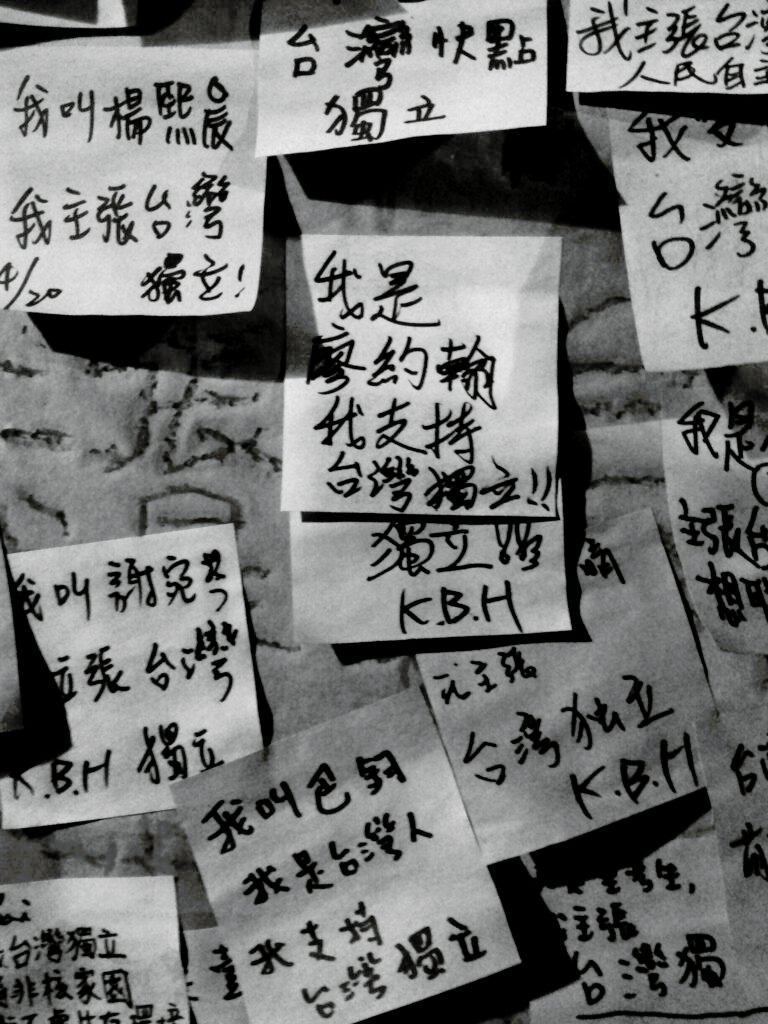 台灣快點
獨立
我主張台灣
人民自主
我叫楊熙宸
我主張台灣
4/20 獨立!
我
台灣
K.B
我是
廖約翰
我支持
台灣獨立!!
獨立
K.B.H
我是
主張
想
我叫謝宛
主張台灣
K.B.H 獨立
主張
台灣独立
K.B.H
我叫巴
我是台灣人
我支持
台灣獨立
臺
台灣獨立
非核家園
考生,
主張
台灣獨